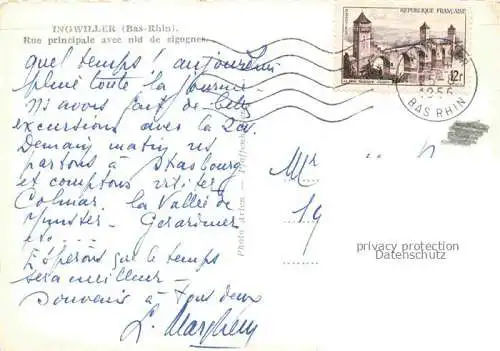 INGWILLER (Bas-Rhin).
Rue principale avec nid de cigognes.
quel temps ! aujourd'hui
pluie toute la journée
ns avons fait de belles
excursions avec la 2cv
Demain matin ns
partons à Strasbourg
et comptons visiter
Colmar, la Vallée de
Munster - Gerardmer
etc....
Espérons que le temps
sera meilleur -
Souvenir à tous deux
Photo Arlen
RÉPUBLIQUE FRANÇAISE
12F
1956
BAS RHIN
Mr
19
privacy protection
Datenschutz